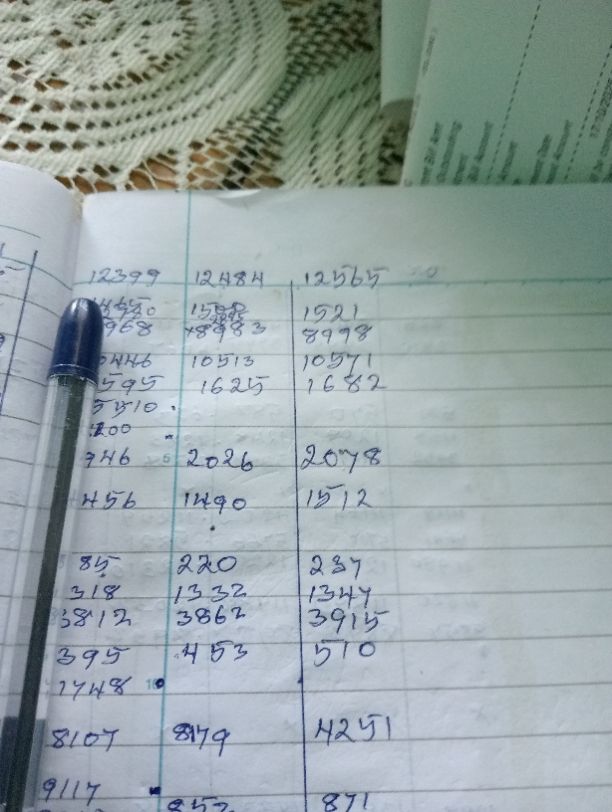 12399 12484 12565
1521
968 8983 8998
0446 10513 10571
595 1625 1682
5510
200
946 2026 2078
456 1490 1512
85 220 237
318 1332 1347
3812 3863 3915
395 453 510
1748
8107 8179 4251
9117
857 871